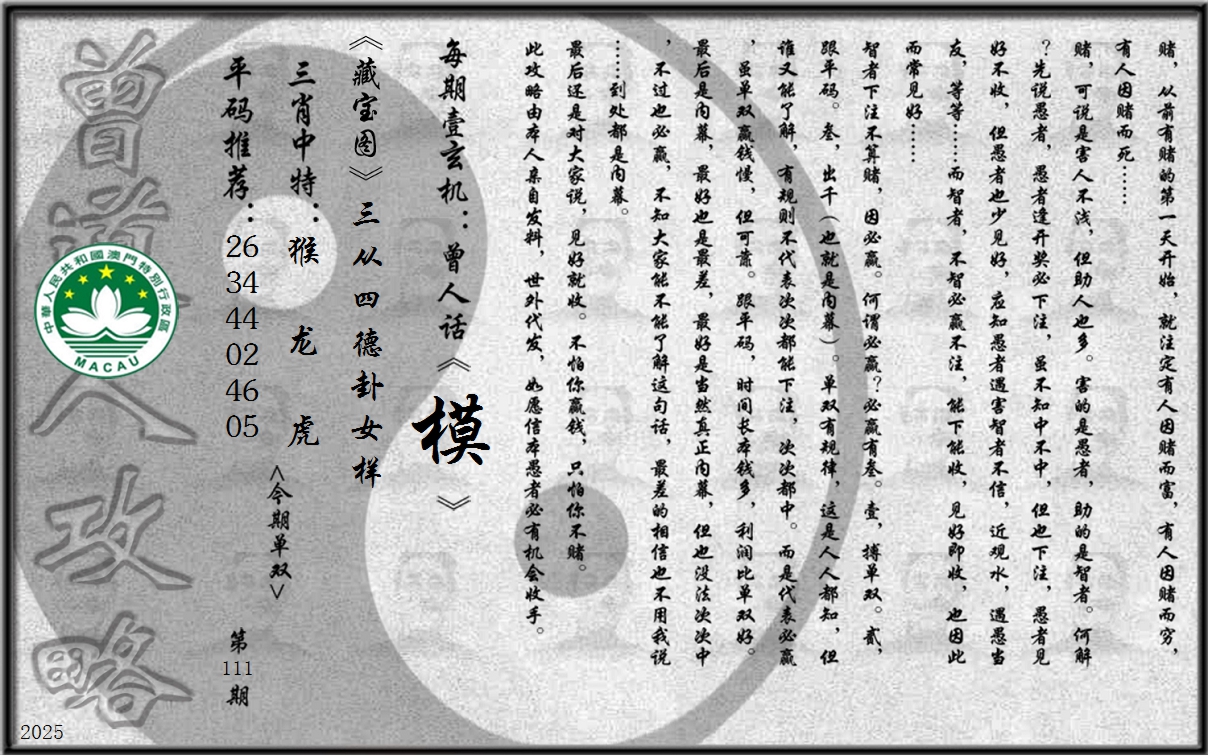 赌，从前有赌的第一天开始，就注定有人因赌而富，有人因赌而穷，
有人因赌而死……
赌，可说是害人不浅，但助人也多。害的是愚者，助的是智者。何解
？先说愚者，愚者逢开奖必下注，虽不知中不中，但也下注，愚者见
好不收，但愚者也少见好，应知愚者遇害智者不信，近观水，遇愚当
友，等等……而智者，不智必赢不注，能下能收，见好即收，也因此
而常见好……
智者下注不算赌，因必赢。何谓必赢？必赢有叁。壹，搏单双。贰，
跟平码。叁，出千（也就是内幕）。单双有规律，这是人人都知，但
谁又能了解，有规则不代表次次都能下注，次次都中。而是代表必赢
，虽单双赢钱慢，但可靠。跟平码，时间长本钱多，利润比单双好。
最后是内幕，最好也是最差，最好是当然真正内幕，但也没法次次中
，不过也必赢，不知大家能不能了解这句话，最差的相信也不用我说
……到处都是内幕。
最后还是对大家说，见好就收。不怕你赢钱，只怕你不赌。
此攻略由本人亲自发料，世外代发，如愿信本愚者必有机会收手。
每期壹玄机：曾人话《模》
《藏宝图》三从四德卦女样
三肖中特：猴 龙 虎
<今期单双>
平码推荐：26 34 44 02 46 05
第111期
曾道人攻略
中華人民共和國澳門特別行政區
MACAU
2025